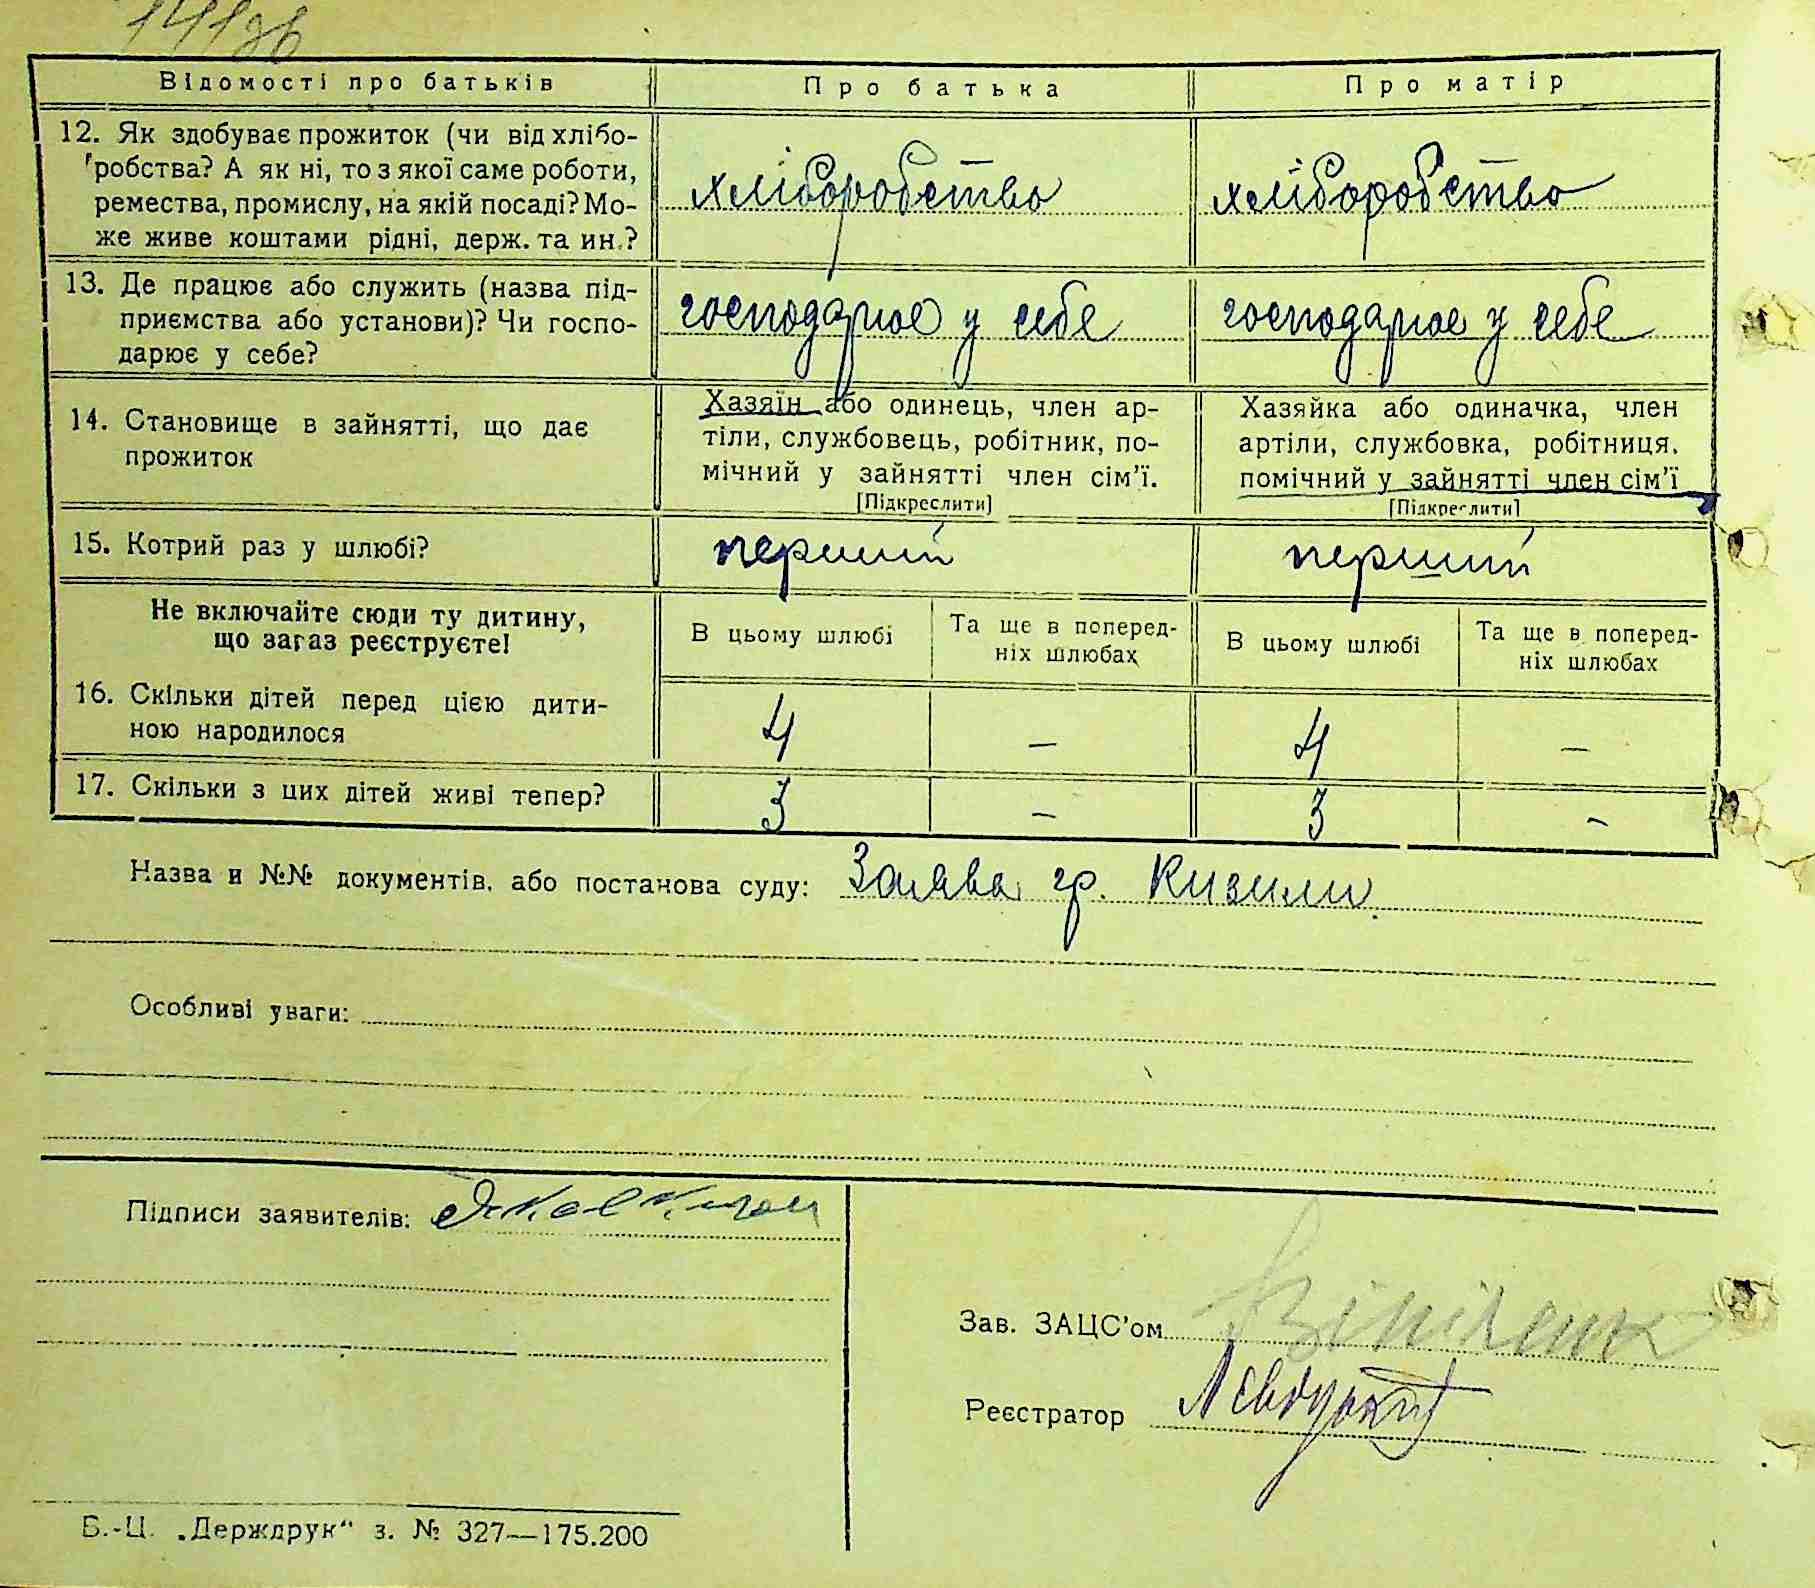 Відомості про батьків
Про батька
Про матір
12. Як здобуває прожиток (чи від хлібо-
робства? А як ні, то з якої саме роботи,
ремества, промислу, на якій посаді? Мо-
же живе коштами рідні, держ. та ин.?
хліборобство
хліборобство
13. Де працює або служить (назва під-
приємства або установи)? Чи госпо-
дарює у себе?
господарює у себе
господарює у себе
14. Становище в зайнятті, що дає
прожиток
Хазяїн або одинець, член ар-
тіли, службовець, робітник, по-
мічний у зайнятті член сім'ї.
[Підкреслити]
Хазяйка або одиначка, член
артіли, службовка, робітниця,
помічний у зайнятті член сім'ї
[Підкреслити]
15. Котрий раз у шлюбі?
перший
перший
Не включайте сюди ту дитину,
що зараз реєструєте!
В цьому шлюбі
Та ще в поперед-
ніх шлюбах
В цьому шлюбі
Та ще в поперед-
ніх шлюбах
16. Скільки дітей перед цією дити-
ною народилося
4
—
4
—
17. Скільки з цих дітей живі тепер?
3
—
3
-
Назва и №№ документів, або постанова суду: Заява гр. Кизими
Особливі уваги:
Підписи заявителів:
Зав. ЗАЦС'ом
Реєстратор
Б.-Ц. „Держдрук" з. № 327—175.200